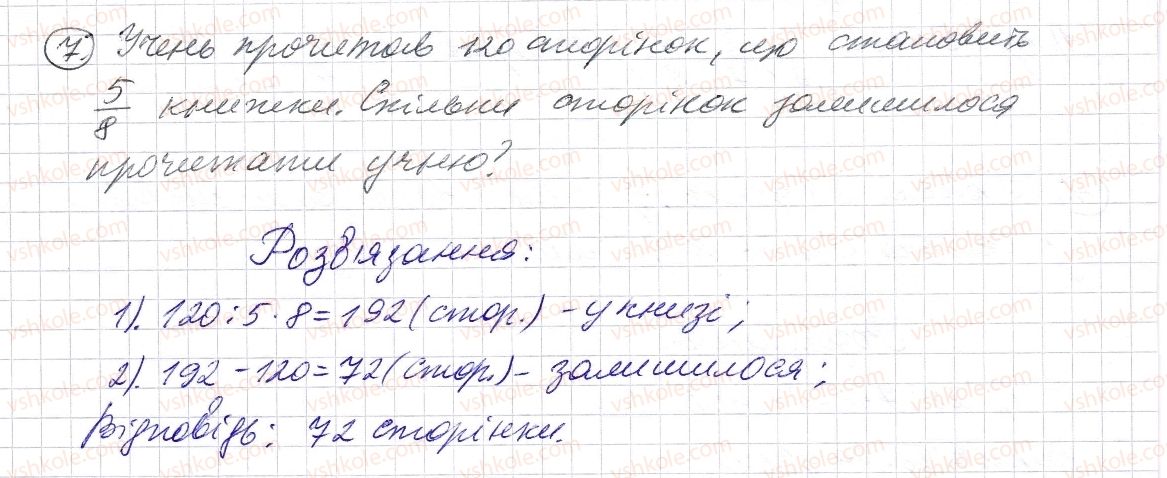 7. Учень прочитав 120 сторінок, що становить
5/8 книжки. Скільки сторінок залишилося
прочитати учню?
Розв'язання:
1). 120 : 5 · 8 = 192 (стор.) - у книзі;
2). 192 - 120 = 72 (стор.) - залишилося;
Відповідь: 72 сторінки.
vshkole.com